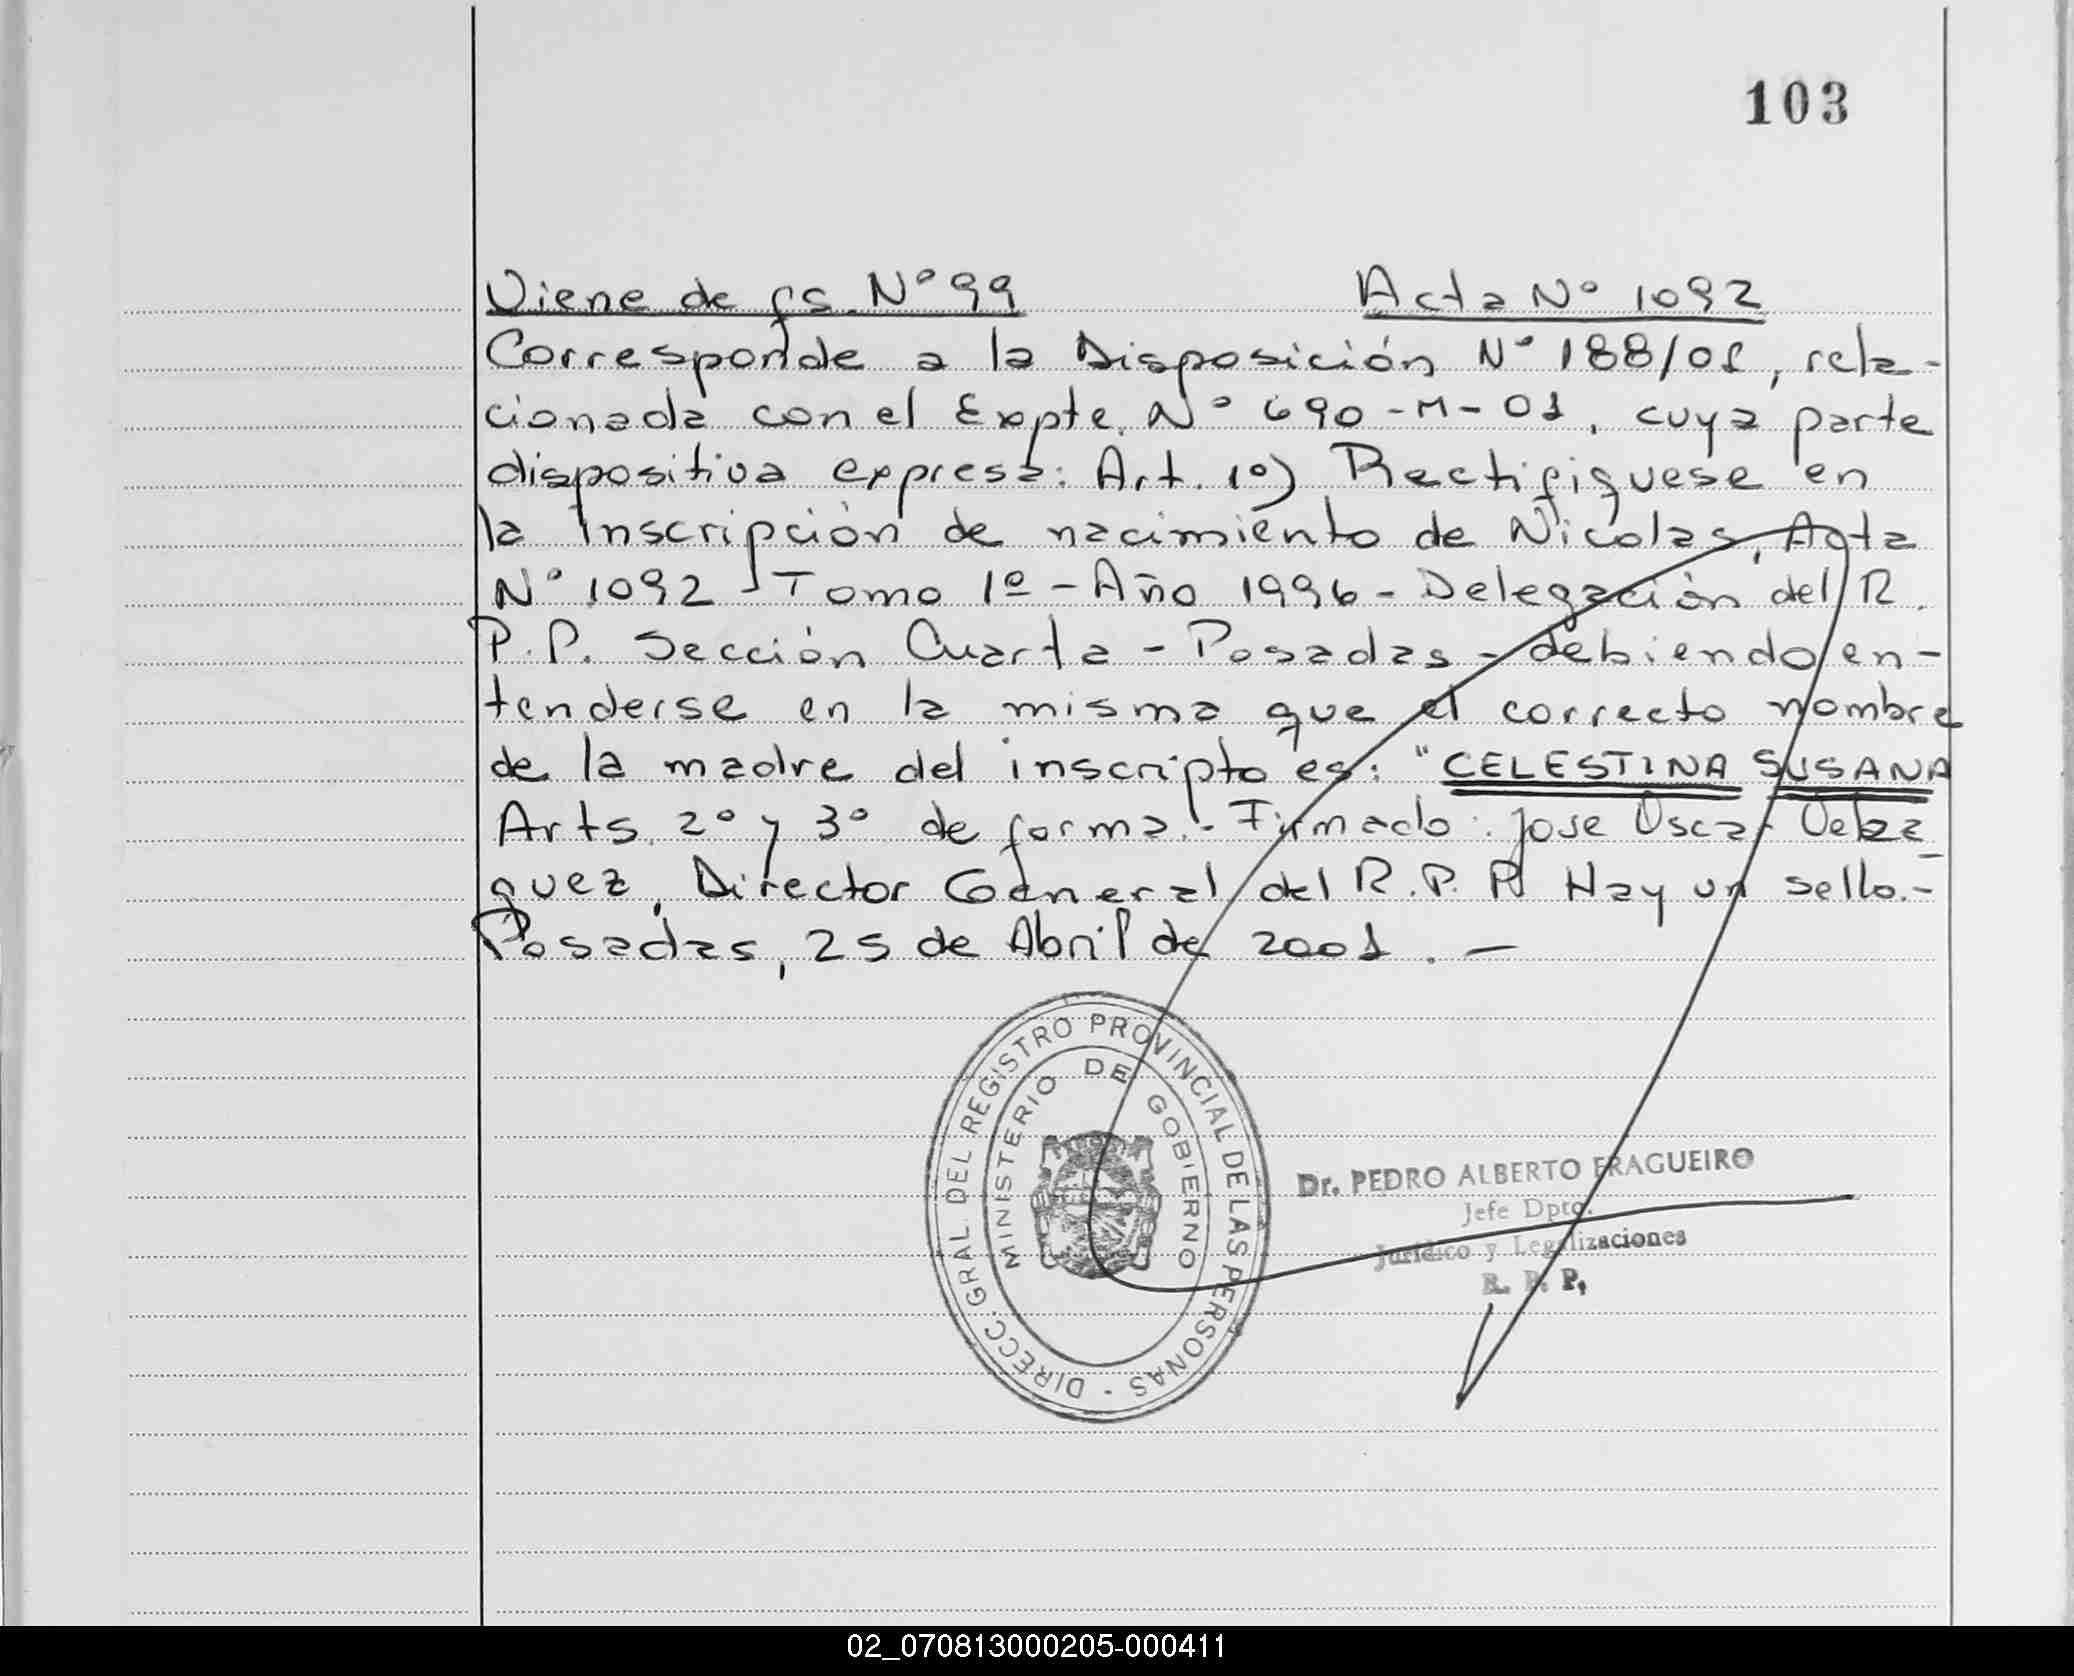 103
Viene de fs. Nº 99 Acta Nº 1092
Corresponde a la Disposición Nº 188/01, rela-
cionada con el Expte. Nº 690-M-01, cuya parte
dispositiva expresa: Art. 1º) Rectifiquese en
la inscripción de nacimiento de Nicolas, Acta
Nº 1092 - Tomo 1º - Año 1996 - Delegación del R.
P.P. Sección Cuarta - Posadas - debiendo en-
tenderse en la misma que el correcto nombre
de la madre del inscripto es: "CELESTINA SUSANA
Arts. 2º y 3º de forma.- Firmado: Jose Oscar Velaz
quez, Director General del R.P.P. Hay un sello.-
Posadas, 25 de Abril de 2001. -
DIRECC. GRAL. DEL REGISTRO PROVINCIAL DE LAS PERSONAS -
MINISTERIO DE GOBIERNO
Dr. PEDRO ALBERTO FRAGUEIRO
Jefe Dpto.
Jurídico y Legalizaciones
R. P. P.
02_070813000205-000411